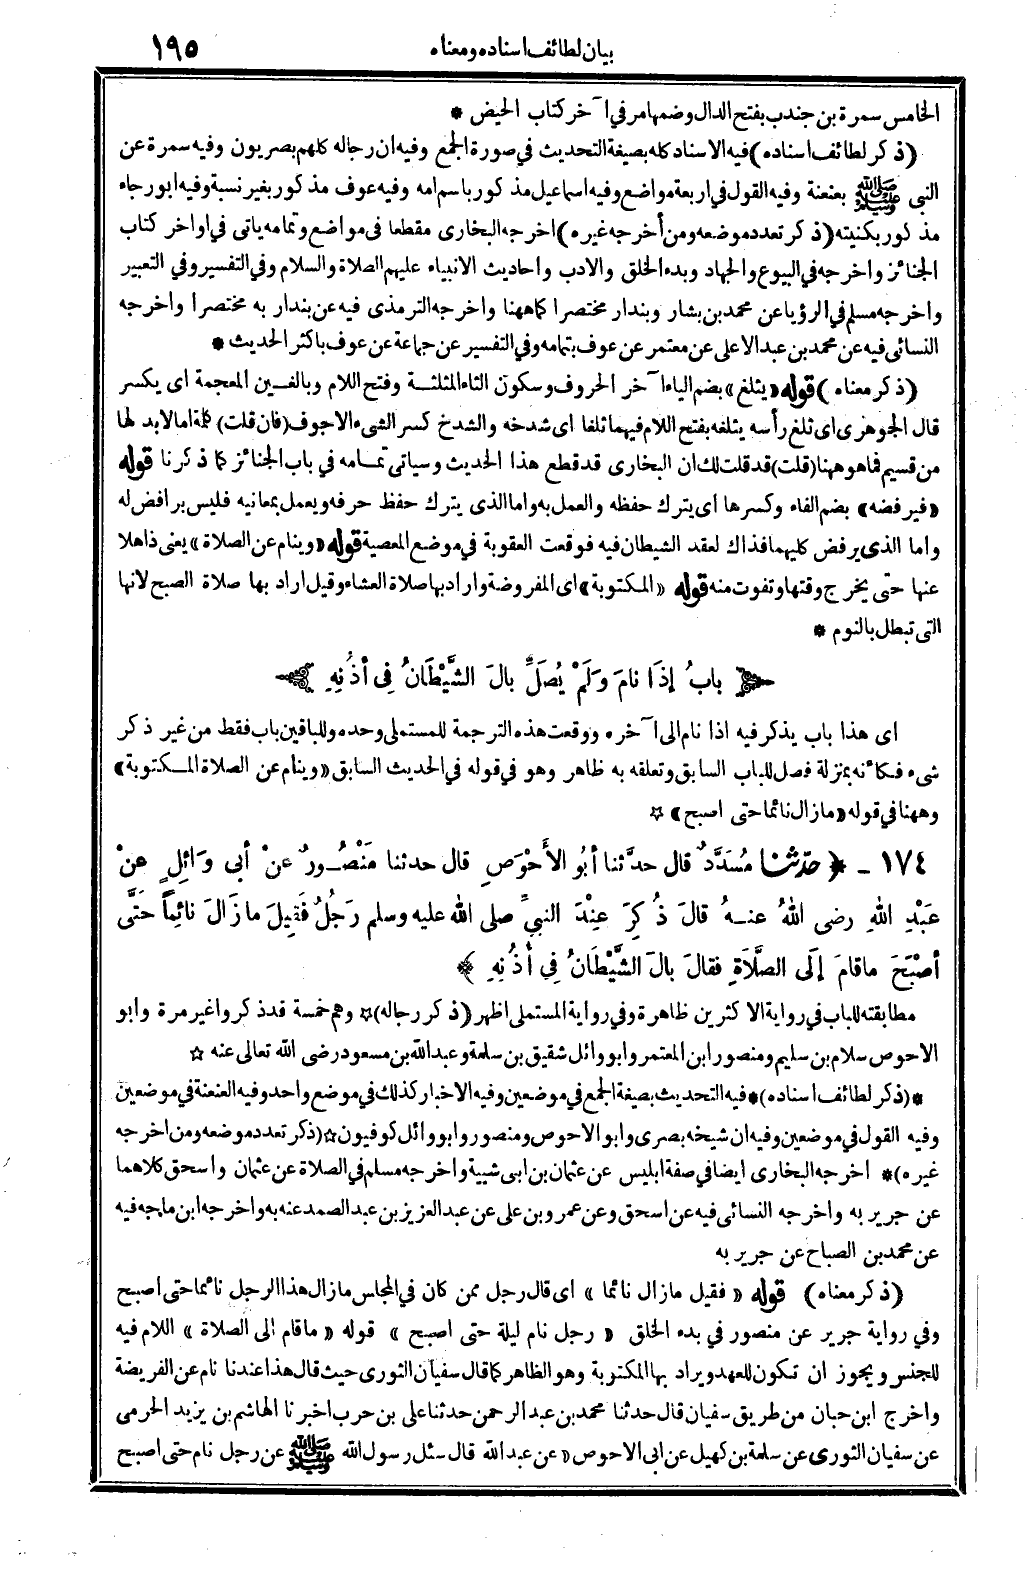 بيان لطائف اسناده ومعناه ١٩٥
الخامس سمرة بن جندب بفتح الدال وضمها مر في آخر كتاب الحيض *
(ذكر لطائف اسناده) فيه الاسناد كله بصيغة التحديث في صورة الجمع وفيه ان رجاله كلهم بصريون وفيه سمرة عن
النبي ﷺ بعنعنة وفيه القول في اربعة مواضع وفيه اسماعيل مذكور باسم امه وفيه عوف مذكور بغير نسبة وفيه ابو رجاء
مذكور بكنيته (ذكر تعدد موضعه ومن أخرجه غيره) اخرجه البخارى مقطعا فى مواضع وتمامه ياتى في اواخر كتاب
الجنائز واخرجه في البيوع والجهاد وبدء الخلق والادب واحاديث الانبياء عليهم الصلاة والسلام وفي التفسير وفي التعبير
واخرجه مسلم في الرؤيا عن محمد بن بشار وبندار مختصرا كما ههنا واخرجه الترمذى فيه عن بندار به مختصرا واخرجه
النسائى فيه عن محمد بن عبد الاعلى عن معتمر عن عوف بتمامه وفي التفسير عن جماعة عن عوف باكثر الحديث *
(ذكر معناه) قوله «يثلغ» بضم الياء آخر الحروف وسكون الثاء المثلثة وفتح اللام وبالغين المعجمة اى يكسر
قال الجوهرى اى ثلغ رأسه يثلغه بفتح اللام فيهما ثلغا اى شدخه والشدخ كسر الشىء الاجوف (فان قلت) كلمة اما لا بد لها
من قسيم فما هو ههنا (قلت) قد قلت لك ان البخارى قد قطع هذا الحديث وسياتى تمامه في باب الجنائز كما ذكرنا قوله
«فيرفضه» بضم الفاء وكسرها اى يترك حفظه والعمل به واما الذى يترك حفظ حرفه ويعمل بمعانيه فليس برافض له
واما الذى يرفض كليهما فذاك لعقد الشيطان فيه فوقعت العقوبة في موضع المعصية قوله «وينام عن الصلاة» يعنى ذاهلا
عنها حتى يخرج وقتها وتفوت منه قوله «المكتوبة» اى المفروضة واراد بها صلاة العشاء وقيل اراد بها صلاة الصبح لانها
التى تبطل بالنوم *
بابُ إذَا نامَ ولَمْ يُصَلِّ بالَ الشَّيْطَانُ فِي أُذُنِهِ
اى هذا باب يذكر فيه اذا نام الى آخره ووقعت هذه الترجمة للمستملى وحده وللباقين باب فقط من غير ذكر
شىء فكأنه بمنزلة فصل للباب السابق وتعلقه به ظاهر وهو في قوله في الحديث السابق «وينام عن الصلاة المكتوبة»
وههنا في قوله «ما زال نائما حتى اصبح» ☆
١٧٤ - ﴿ حدّثنا مُسَدَّدٌ قال حدّثنا أبُو الأَحْوَصِ قال حدثنا مَنْصُورٌ عنْ أبى وَائِلٍ عنْ
عَبْدِ اللهِ رضى اللهُ عنهُ قالَ ذُكِرَ عِنْدَ النبىِّ صلى الله عليه وسلم رَجُلٌ فَقِيلَ ما زَالَ نائِماً حَتَّى
أصْبَحَ ماقامَ إلَى الصَّلاَةِ فقالَ بالَ الشَّيْطَانُ فِي أُذُنِهِ ﴾
مطابقته للباب في رواية الاكثرين ظاهرة وفي رواية المستملى اظهر (ذكر رجاله) ☆ وهم خمسة قد ذكروا غير مرة وابو
الاحوص سلام بن سليم ومنصور ابن المعتمر وابو وائل شقيق بن سلمة وعبد الله بن مسعود رضى الله تعالى عنه ☆
*(ذكر لطائف اسناده)* فيه التحديث بصيغة الجمع في موضعين وفيه الاخبار كذلك في موضع واحد وفيه العنعنة في موضعين
وفيه القول في موضعين وفيه ان شيخه بصرى وابو الاحوص ومنصور وابو وائل كوفيون ☆(ذكر تعدد موضعه ومن اخرجه
غيره)* اخرجه البخارى ايضا في صفة ابليس عن عثمان بن ابى شيبة واخرجه مسلم في الصلاة عن عثمان واسحق كلاهما
عن جرير به واخرجه النسائى فيه عن اسحق وعن عمرو بن على عن عبد العزيز بن عبد الصمد عنه به واخرجه ابن ماجه فيه
عن محمد بن الصباح عن جرير به
(ذكر معناه) قوله «فقيل ما زال نائما» اى قال رجل ممن كان في المجلس ما زال هذا الرجل نائما حتى اصبح
وفي رواية جرير عن منصور في بدء الخلق «رجل نام ليلة حتى اصبح» قوله «ماقام الى الصلاة» اللام فيه
للجنس ويجوز ان تكون للعهد ويراد بها المكتوبة وهو الظاهر كما قال سفيان الثورى حيث قال هذا عندنا نام عن الفريضة
واخرج ابن حبان من طريق سفيان قال حدثنا محمد بن عبد الرحمن حدثنا على بن حرب اخبرنا الهاشم بن يزيد الحرمى
عن سفيان الثورى عن سلمة بن كهيل عن ابى الاحوص «عن عبد الله قال سئل رسول الله ﷺ عن رجل نام حتى اصبح